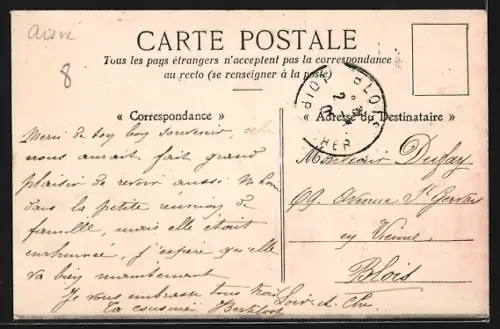 Aisne
8
CARTE POSTALE
Tous les pays étrangers n'acceptent pas la correspondance
au recto (se renseigner à la poste)
BLOIS
CHER
« Correspondance »
« Adresse du Destinataire »
Merci de ton bon souvenir, cela
nous aurait fait grand
plaisir de revoir aussi
dans la petite reunion de
famille, mais elle était
enrhumée, j'espère qu'elle
va bien maintenant
Je vous embrasse tous trois
Ta cousine
Monsieur Dufay
69 Avenue St Gervais
en Vienne
Blois
Loir-et-Cher